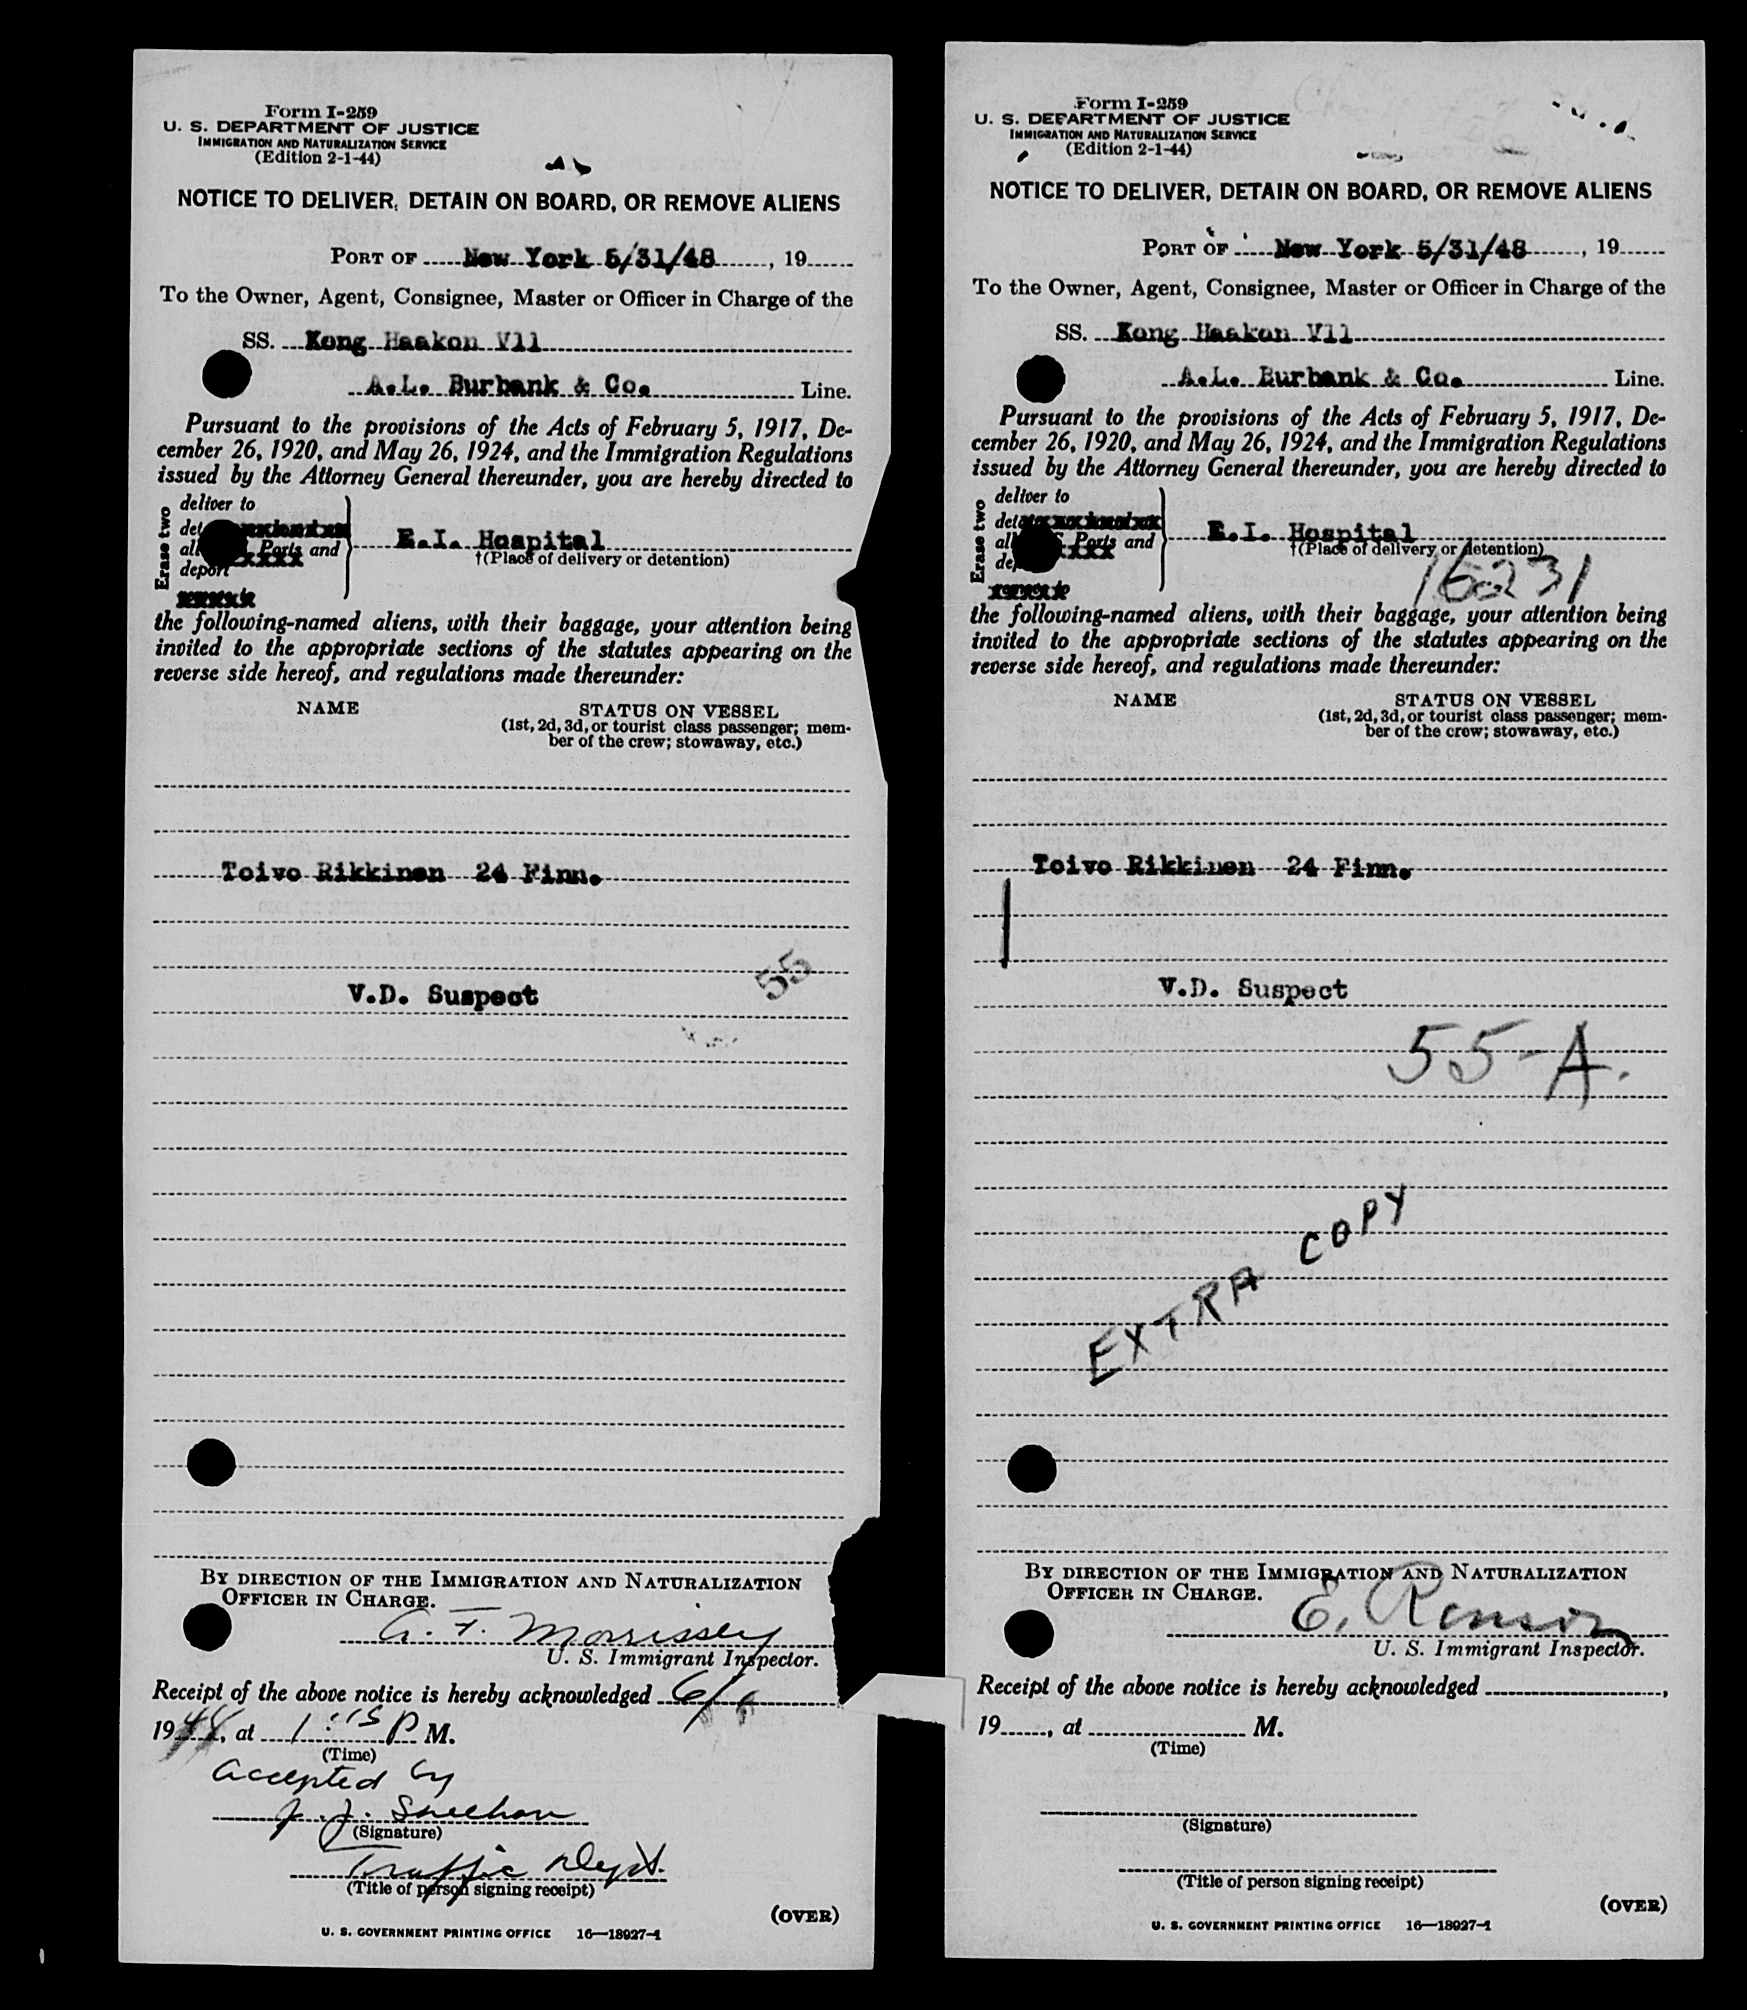 Form I-259
U. S. DEPARTMENT OF JUSTICE
IMMIGRATION AND NATURALIZATION SERVICE
(Edition 2-1-44)
NOTICE TO DELIVER, DETAIN ON BOARD, OR REMOVE ALIENS
PORT OF New York 5/31/48, 19
To the Owner, Agent, Consignee, Master or Officer in Charge of the
SS. Kong Haakon V11
A.L. Burbank & Co. Line.
Pursuant to the provisions of the Acts of February 5, 1917, De-
cember 26, 1920, and May 26, 1924, and the Immigration Regulations
issued by the Attorney General thereunder, you are hereby directed to
Erase two
deliver to
Ports and
deport
E.I. Hospital
†(Place of delivery or detention)
the following-named aliens, with their baggage, your attention being
invited to the appropriate sections of the statutes appearing on the
reverse side hereof, and regulations made thereunder:
NAME STATUS ON VESSEL
(1st, 2d, 3d, or tourist class passenger; mem-
ber of the crew; stowaway, etc.)
Toivo Rikkinen 24 Finn.
55
V.D. Suspect
BY DIRECTION OF THE IMMIGRATION AND NATURALIZATION
OFFICER IN CHARGE.
A. F. Morrissey
U. S. Immigrant Inspector.
Receipt of the above notice is hereby acknowledged 6/
1948, at 1:15 P M.
(Time)
accepted by
J. J. Sheehan
(Signature)
Traffic Dept.
(Title of person signing receipt)
(OVER)
U. S. GOVERNMENT PRINTING OFFICE 16—18927-1
Form I-259
U. S. DEPARTMENT OF JUSTICE
IMMIGRATION AND NATURALIZATION SERVICE
(Edition 2-1-44)
NOTICE TO DELIVER, DETAIN ON BOARD, OR REMOVE ALIENS
PORT OF New York 5/31/48, 19
To the Owner, Agent, Consignee, Master or Officer in Charge of the
SS. Kong Haakon V11
A.L. Burbank & Co. Line.
Pursuant to the provisions of the Acts of February 5, 1917, De-
cember 26, 1920, and May 26, 1924, and the Immigration Regulations
issued by the Attorney General thereunder, you are hereby directed to
Erase two
deliver to
Ports and
E.I. Hospital
†(Place of delivery or detention)
16231
the following-named aliens, with their baggage, your attention being
invited to the appropriate sections of the statutes appearing on the
reverse side hereof, and regulations made thereunder:
NAME STATUS ON VESSEL
(1st, 2d, 3d, or tourist class passenger; mem-
ber of the crew; stowaway, etc.)
Toivo Rikkinen 24 Finn.
V.D. Suspect
55-A.
EXTRA COPY
BY DIRECTION OF THE IMMIGRATION AND NATURALIZATION
OFFICER IN CHARGE.
E. Ronson
U. S. Immigrant Inspector.
Receipt of the above notice is hereby acknowledged ,
19 , at M.
(Time)
(Signature)
(Title of person signing receipt)
(OVER)
U. S. GOVERNMENT PRINTING OFFICE 16—18927-1